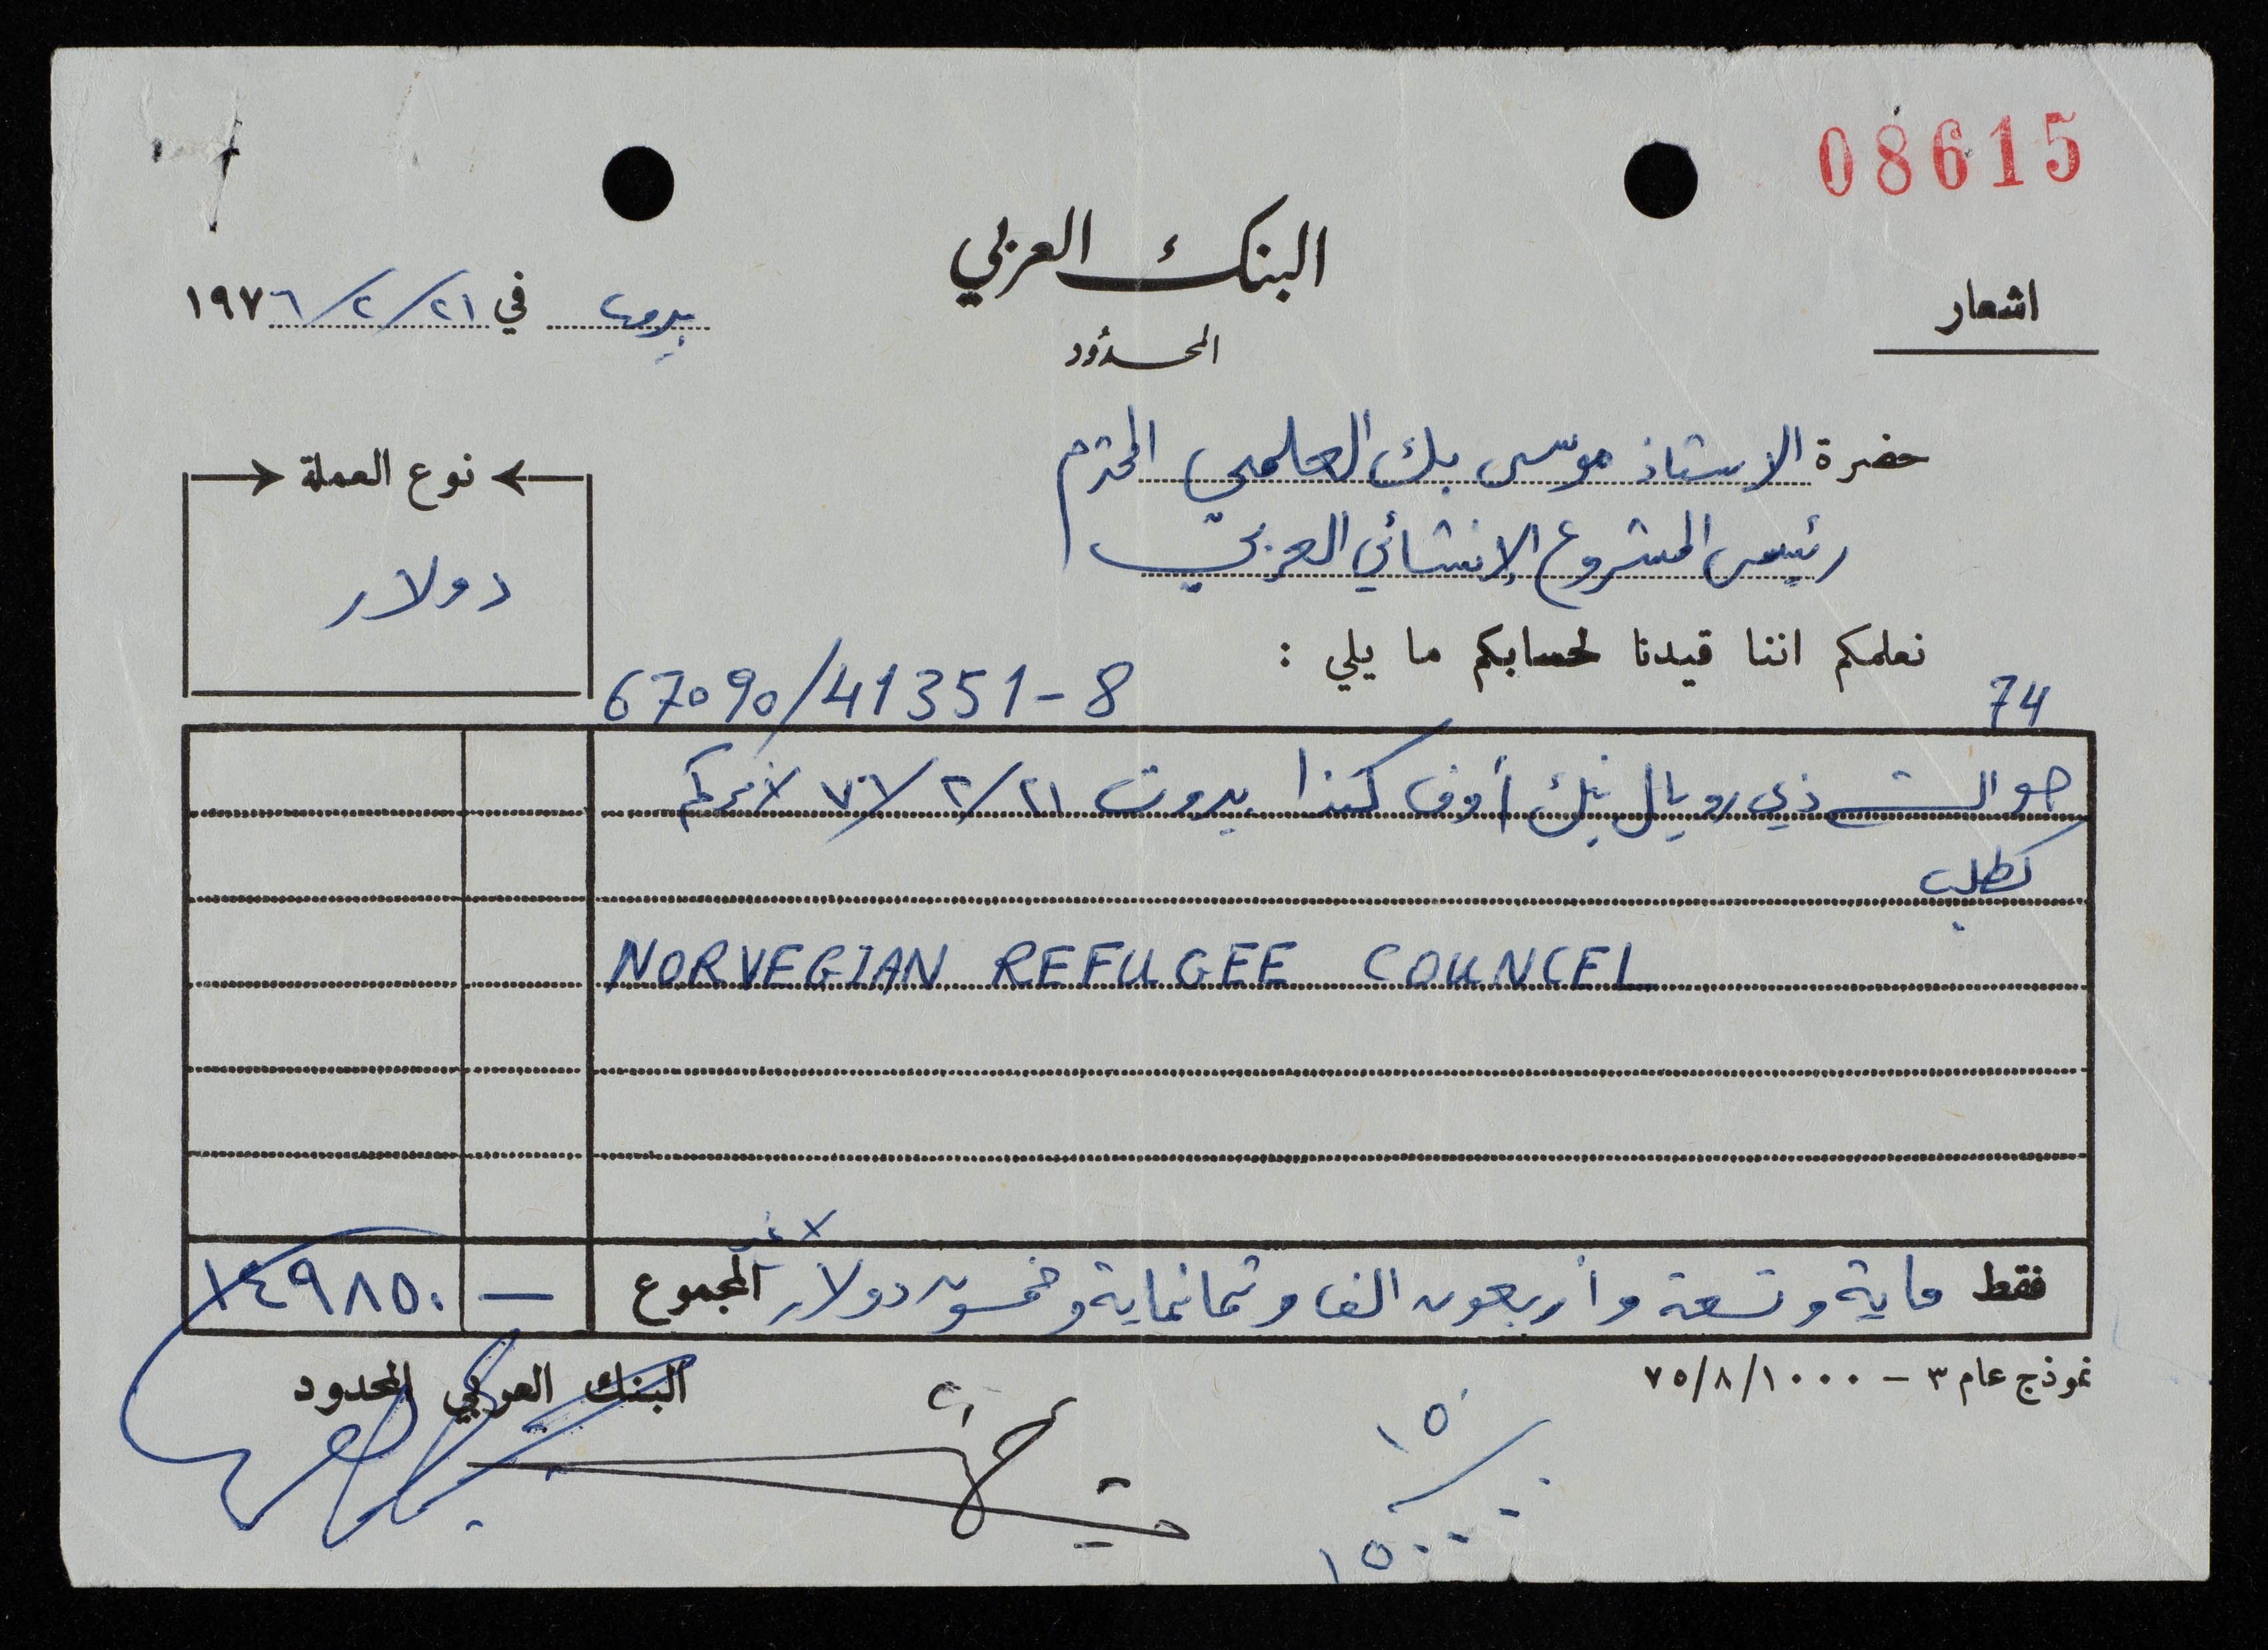 08615
البنك العربي
المحدود
اشعار
بيروت في ٢١/٢/١٩٧٦
حضرة الاستاذ موسى بك العلمي المحترم
رئيس المشروع الإنشائي العربي
نوع العملة
دولار
نعلمكم اننا قيدنا لحسابكم ما يلي :
67090/41351-8
74
حوالت ذي رويال بنك أوف كندا بيروت ٢١/٢/٧٦ لأمركم
بطلب
NORVEGIAN REFUGEE COUNCEL
فقط ماية وتسعة وأربعون الف وثمانماية وخمسون دولار لا غير
المجموع — ١٤٩٨٥٠
نموذج عام ٣ - ٧٥/٨/١٠٠٠
البنك العربي المحدود
١٥٠
١٥٠٠٠٠